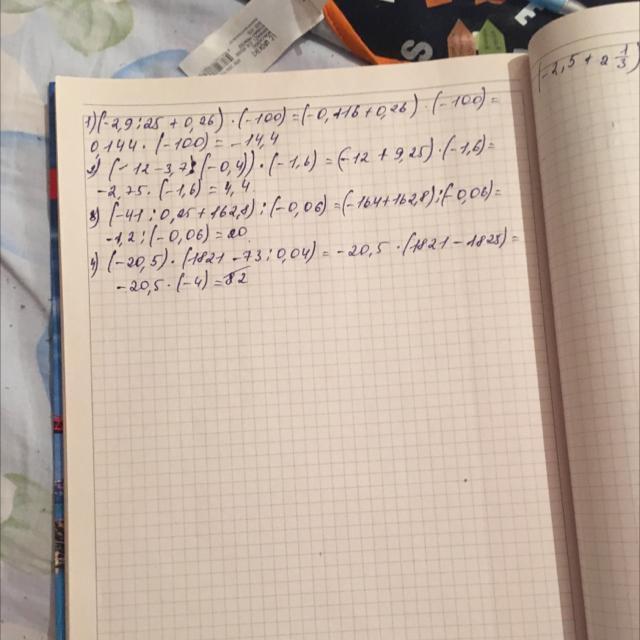 1) (-2,9:25 + 0,26) · (-100) = (-0,116 + 0,26) · (-100) =
0,144 · (-100) = -14,4
2) (-12-3,7:(-0,4)) · (-1,6) = (-12 + 9,25) · (-1,6) =
-2,75 · (-1,6) = 4,4
3) (-41:0,25+162,8):(-0,06) = (-164+162,8):(-0,06) =
-1,2:(-0,06) = 20
4) (-20,5) · (1821-73:0,04) = -20,5 · (1821-1825) =
-20,5 · (-4) = 82
(-2,5 + 2 1/3)